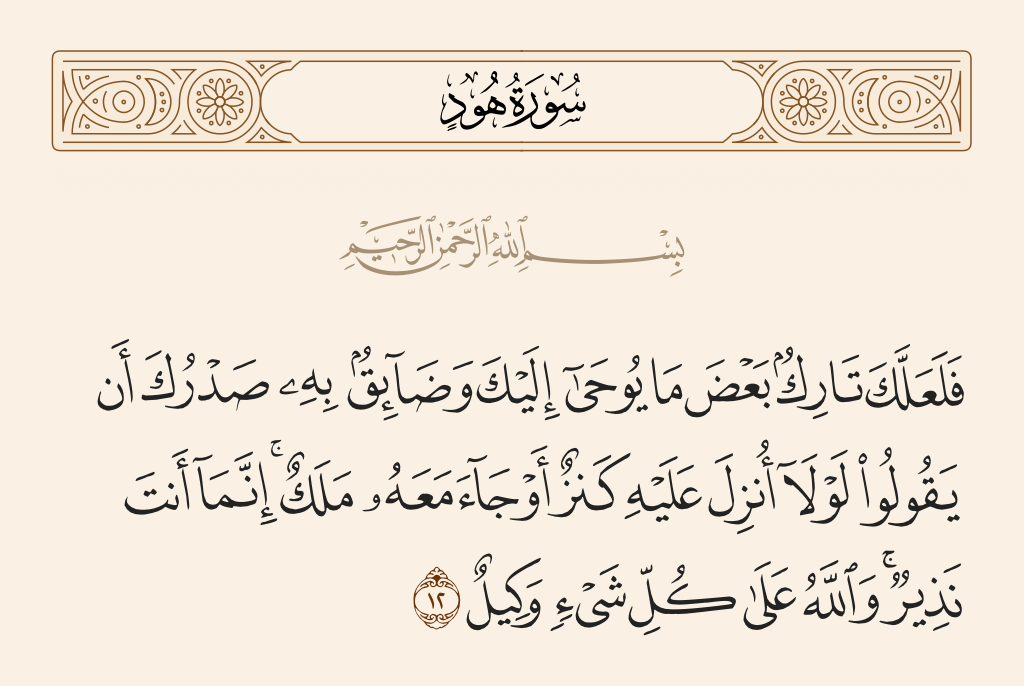 سُورَةُ هُودٍ
بِسْمِ ٱللَّهِ ٱلرَّحْمَٰنِ ٱلرَّحِيمِ
فَلَعَلَّكَ تَارِكٌۢ بَعْضَ مَا يُوحَىٰٓ إِلَيْكَ وَضَآئِقٌۢ بِهِۦ صَدْرُكَ أَن
يَقُولُوا۟ لَوْلَآ أُنزِلَ عَلَيْهِ كَنزٌ أَوْ جَآءَ مَعَهُۥ مَلَكٌ ۚ إِنَّمَآ أَنتَ
نَذِيرٌ ۚ وَٱللَّهُ عَلَىٰ كُلِّ شَىْءٍ وَكِيلٌ ١٢